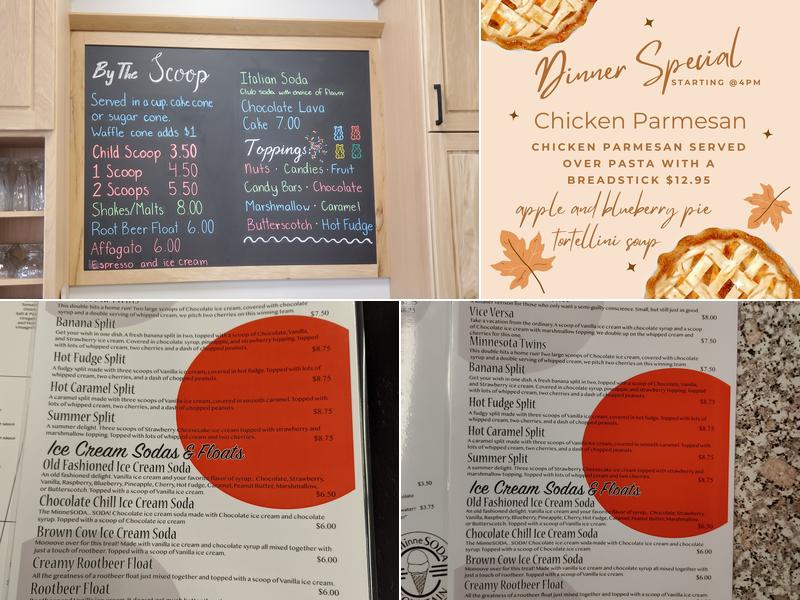 By The Scoop
Served in a cup, cake cone
or sugar cone.
Waffle cone adds $1
Child Scoop 3.50
1 Scoop 4.50
2 Scoops 5.50
Shakes/Malts 8.00
Root Beer Float 6.00
Affogato 6.00
Espresso and ice cream
Italian Soda
Club soda with choice of flavor
Chocolate Lava
Cake 7.00
Toppings
Nuts · Candies · Fruit
Candy Bars · Chocolate
Marshmallow · Caramel
Butterscotch · Hot Fudge
Dinner Special
STARTING @4PM
Chicken Parmesan
CHICKEN PARMESAN SERVED
OVER PASTA WITH A
BREADSTICK $12.95
apple and blueberry pie
tortellini soup
This double hits a home run! Two large scoops of Chocolate ice cream, covered with chocolate
syrup and a double serving of whipped cream, we pitch two cherries on this winning team.
$7.50
Banana Split
Get your wish in one dish. A fresh banana split in two, topped with a scoop of Chocolate, Vanilla,
and Strawberry ice cream. Covered in chocolate syrup, pineapple, and strawberry topping. Topped
with lots of whipped cream, two cherries and a dash of chopped peanuts.
$8.75
Hot Fudge Split
A fudgy split made with three scoops of Vanilla ice cream, covered in hot fudge. Topped with lots of
whipped cream, two cherries, and a dash of chopped peanuts.
$8.75
Hot Caramel Split
A caramel split made with three scoops of Vanilla ice cream, covered in smooth caramel. Topped with
lots of whipped cream, two cherries, and a dash of chopped peanuts.
$8.75
Summer Split
A summer delight. Three scoops of Strawberry Cheesecake ice cream topped with strawberry and
marshmallow topping. Topped with lots of whipped cream.
$8.75
Ice Cream Sodas & Floats
Old Fashioned Ice Cream Soda
An old fashioned delight. Vanilla ice cream and your favorite flavor of syrup.. Chocolate, Strawberry,
Vanilla, Raspberry, Blueberry, Pineapple, Cherry, Hot Fudge, Caramel, Peanut Butter, Marshmallow,
or Butterscotch. Topped with a scoop of Vanilla ice cream.
$6.50
Chocolate Chill Ice Cream Soda
The MinneSODA.. SODA! Chocolate ice cream soda made with Chocolate ice cream and chocolate
syrup. Topped with a scoop of Chocolate ice cream
$6.00
Brown Cow Ice Cream Soda
Moooove over for this treat! Made with vanilla ice cream and chocolate syrup all mixed together with
just a touch of rootbeer. Topped with a scoop of Vanilla ice cream.
$6.00
Creamy Rootbeer Float
All the greatness of a rootbeer float just mixed together and topped with a scoop of Vanilla ice cream.
$6.00
Rootbeer Float
version for those who only want a semi-guilty conscience. Small, but still just as good.
$8.00
Vice Versa
Take a vacation from the ordinary. A scoop of Vanilla ice cream with chocolate syrup and a scoop
of Chocolate ice cream with marshmallow topping. We double up on the whipped cream and
cherries for this one.
Minnesota Twins
This double hits a home run! Two large scoops of Chocolate ice cream, covered with chocolate
syrup and a double serving of whipped cream, we pitch two cherries on this winning team.
$7.50
Banana Split
Get your wish in one dish. A fresh banana split in two, topped with a scoop of Chocolate, Vanilla,
and Strawberry ice cream. Covered in chocolate syrup, pineapple, and strawberry topping. Topped
with lots of whipped cream, two cherries and a dash of chopped peanuts.
$8.75
Hot Fudge Split
A fudgy split made with three scoops of Vanilla ice cream, covered in hot fudge. Topped with lots of
whipped cream, two cherries, and a dash of chopped peanuts.
$8.75
Hot Caramel Split
A caramel split made with three scoops of Vanilla ice cream, covered in smooth caramel. Topped with
lots of whipped cream, two cherries, and a dash of chopped peanuts.
$8.75
Summer Split
A summer delight. Three scoops of Strawberry Cheesecake ice cream topped with strawberry and
marshmallow topping. Topped with lots of whipped cream.
$8.75
Ice Cream Sodas & Floats
Old Fashioned Ice Cream Soda
An old fashioned delight. Vanilla ice cream and your favorite flavor of syrup.. Chocolate, Strawberry,
Vanilla, Raspberry, Blueberry, Pineapple, Cherry, Hot Fudge, Caramel, Peanut Butter, Marshmallow,
or Butterscotch. Topped with a scoop of Vanilla ice cream.
$6.50
Chocolate Chill Ice Cream Soda
The MinneSODA.. SODA! Chocolate ice cream soda made with Chocolate ice cream and chocolate
syrup. Topped with a scoop of Chocolate ice cream
$6.00
Brown Cow Ice Cream Soda
Moooove over for this treat! Made with vanilla ice cream and chocolate syrup all mixed together with
just a touch of rootbeer. Topped with a scoop of Vanilla ice cream.
$6.00
Creamy Rootbeer Float
All the greatness of a rootbeer float just mixed together and topped with a scoop of Vanilla ice cream.
$3.75
MinneSODA